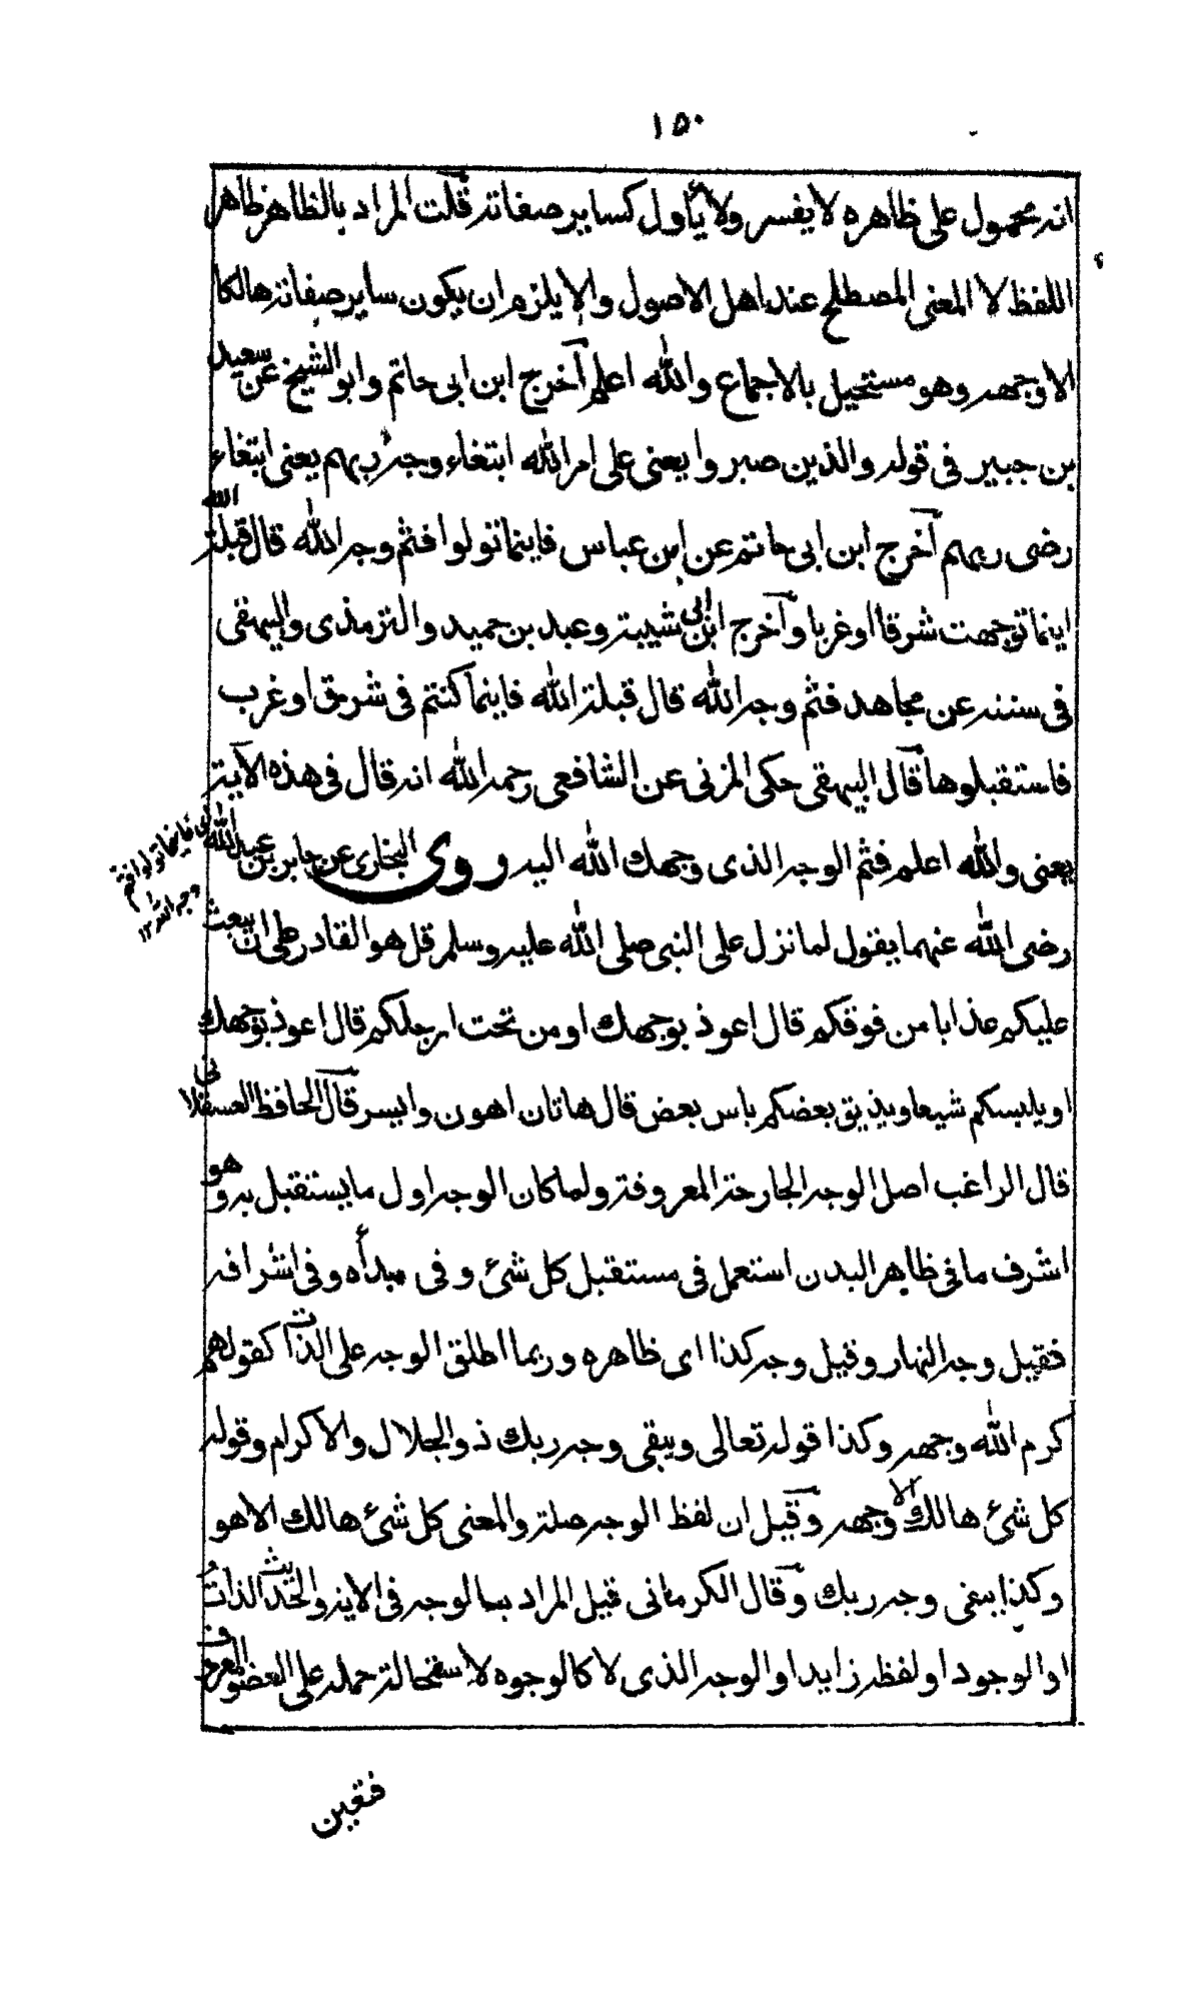 ١٥٠
انه محمول على ظاهره لا يفسر ولا يأول كساير صفاته قلت المراد بالظاهر ظاهر
اللفظ لا المعنى المصطلح عند اهل الاصول والا يلزم ان يكون ساير صفاته هالكا
الا وجهه وهو مستحيل بالاجماع والله اعلم آخرج ابن ابى حاتم وابو الشيخ عن سعيد
بن جبير فى قوله والذين صبروا يعنى على امر الله ابتغاء وجه ربهم يعنى ابتغاء
رضى ربهم آخرج ابن ابى حاتم عن ابن عباس فاينما تولوا فثم وجه الله قال قبلة الله
اينما توجهت شرقا او غربا وآخرج ابن ابى شيبة وعبد بن حميد والترمذى والبيهقى
فى سننه عن مجاهد فثم وجه الله قال قبلة الله فاينما كنتم فى شرق او غرب
فاستقبلوها قال البيهقى حكى المزنى عن الشافعى رحمه الله انه قال فى هذه الآية
يعنى والله اعلم فثم الوجه الذى وجهك الله اليه وروى البخارى عن جابر بن عبد الله
اى فاينما تولوا فثم
وجه الله ١٢
رضى الله عنهما يقول لما نزل على النبى صلى الله عليه وسلم قل هو القادر على ان يبعث
عليكم عذابا من فوقكم قال اعوذ بوجهك او من تحت ارجلكم قال اعوذ بوجهك
او يلبسكم شيعا ويذيق بعضكم باس بعض قال هاتان اهون وايسر قال الحافظ العسقلانى
قال الراغب اصل الوجه الجارحة المعروفة ولما كان الوجه اول ما يستقبل به وهو
اشرف ما فى ظاهر البدن استعمل فى مستقبل كل شئ وفى مبدأه وفى اشرافه
فقيل وجه النهار وقيل وجه كذا اى ظاهره وربما اطلق الوجه على الذات كقولهم
كرم الله وجهه وكذا قوله تعالى ويبقى وجه ربك ذو الجلال والاكرام وقوله
كل شئ هالك الا وجهه وقيل ان لفظ الوجه صلة والمعنى كل شئ هالك الا هو
وكذا يبقى وجه ربك وقال الكرمانى قيل المراد بالوجه فى الاية والحديث الذات
او الوجود او لفظه زايد او الوجه الذى لا كالوجوه لاستحالة حمله على العضو المعروف
فتعين